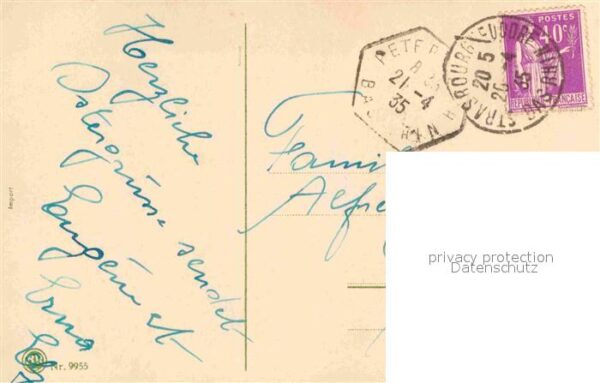 Herzliche
Ostergrüsse sendet
Eugenie et
Erna
Import
Nr. 9955
PETER
BAS RHIN
21-4
35
STRASBOURG NEUDORF
BAS RHIN
20 5
35
POSTES
40c
FRANÇAISE
Famil
Alfre
privacy protection
Datenschutz